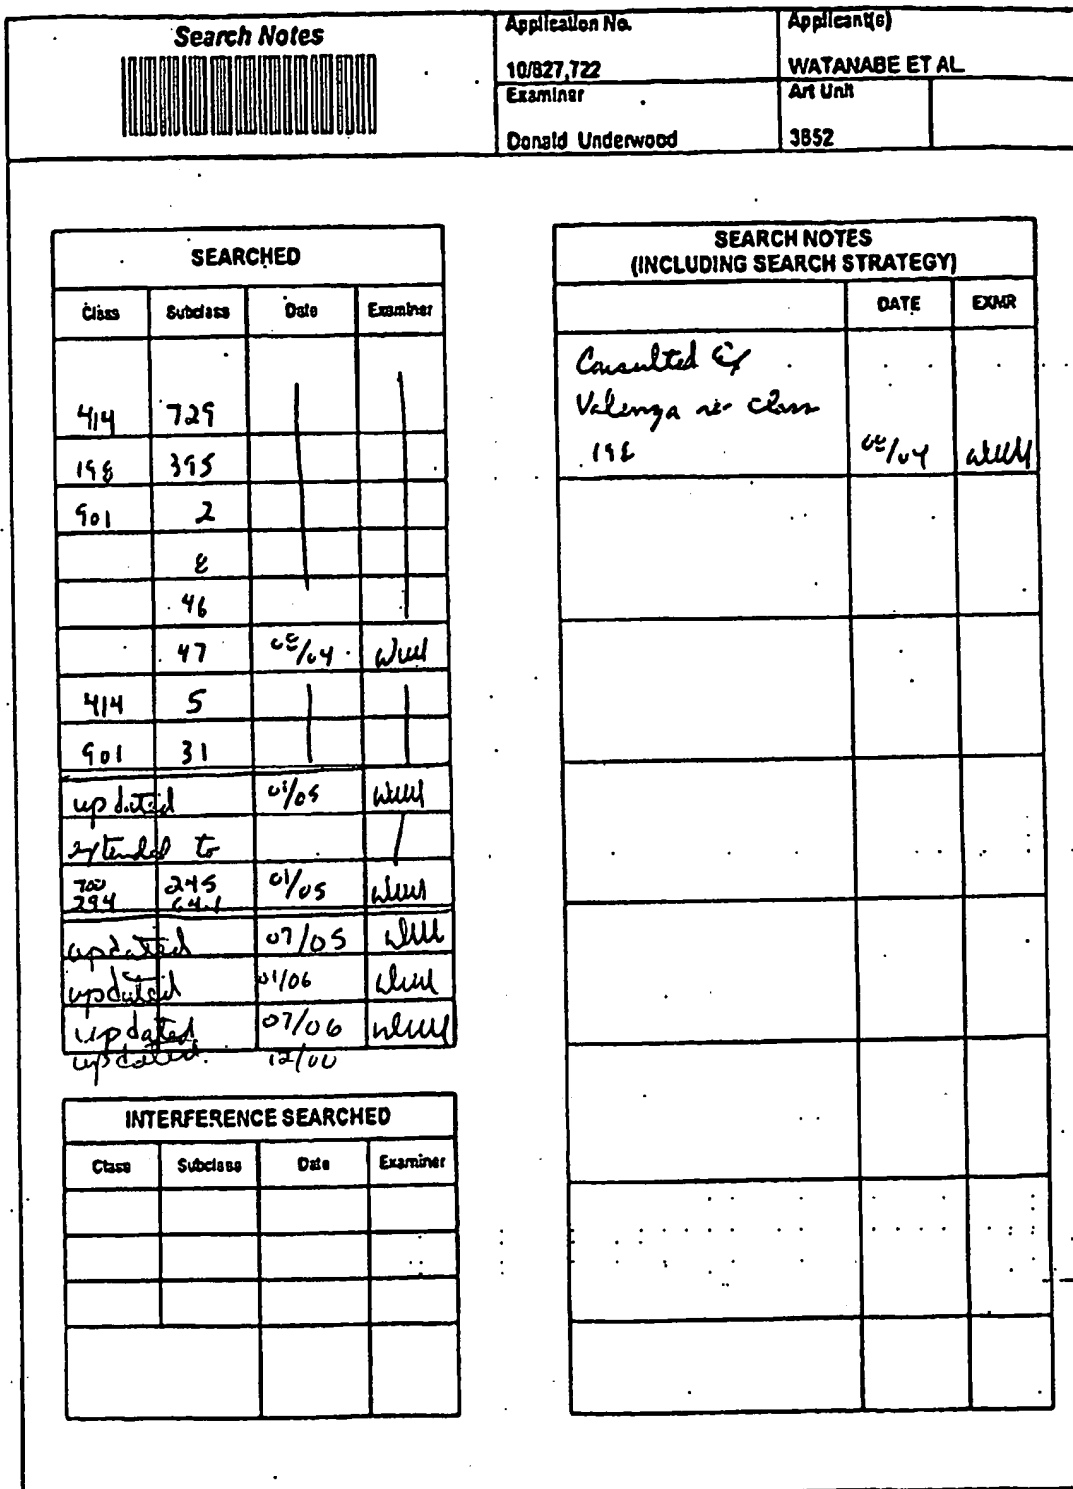 Search Notes
Application No.
Applicant(s)
10/827,722
WATANABE ET AL.
Examiner
Art Unit
Donald Underwood
3652
SEARCHED
Class Subclass Date Examiner
414 729
198 395
901 2
8
46
47 08/04
414 5
901 31
updated 01/05
extended to
700 245 01/05
294 64.1
updated 07/05
updated 01/06
updated 07/06
updated
INTERFERENCE SEARCHED
Class Subclass Date Examiner
SEARCH NOTES
(INCLUDING SEARCH STRATEGY)
DATE EXMR
Consulted Ex
Valenza re class
198 08/04